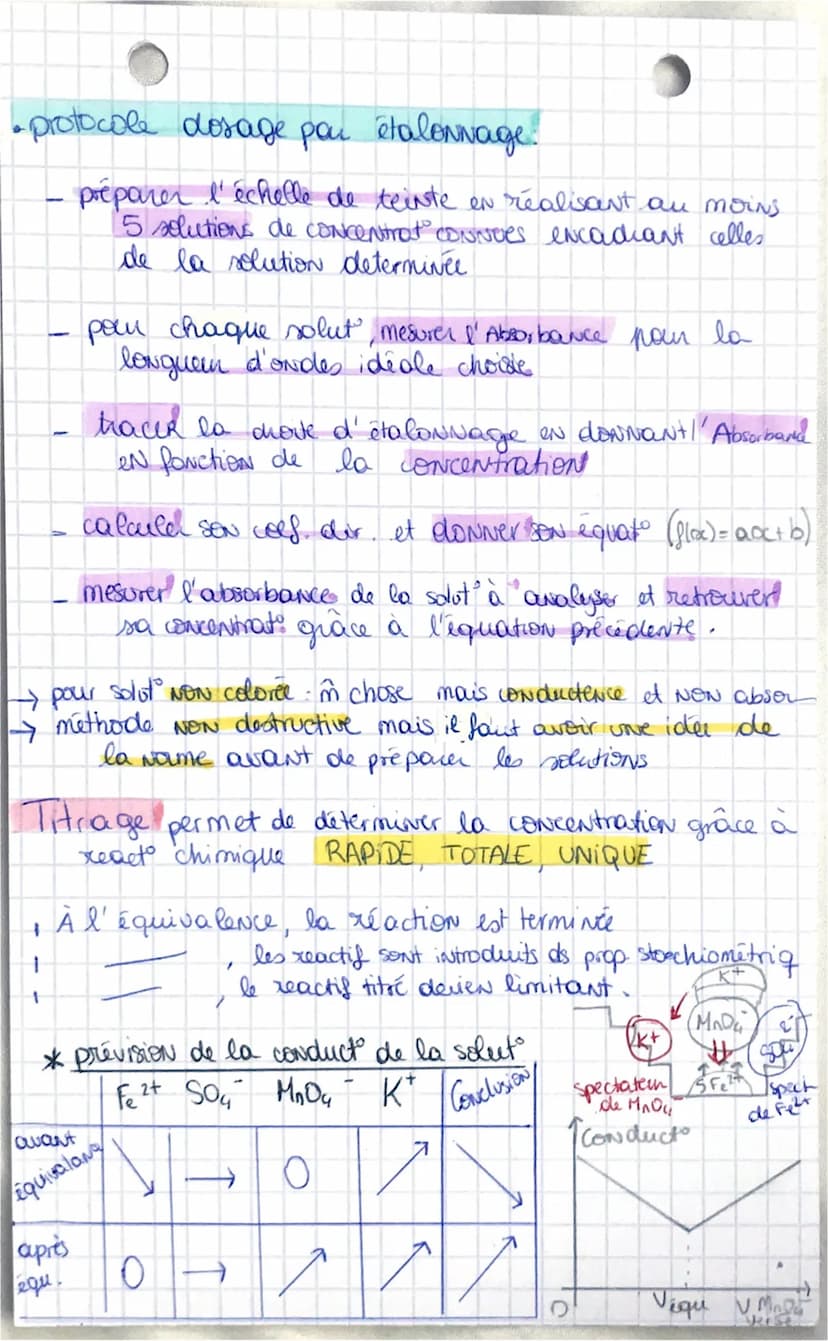 • protocole dosage par étalonnage:
– préparer l'échelle de teinte en réalisant au moins
5 solutions de concentrat° connues encadrant celles
de la solution determinée
– pour chaque solut°, mesurer l'Absorbance pour la
longueur d'ondes idéale choisie
– tracer la droite d'étalonnage en donnant l'Absorbance
en fonction de la concentration
– calculer son coef. dir. et donner son équat° (f(x) = ax + b)
– mesurer l'absorbance de la solut° à analyser et retrouver
sa concentrat° grâce à l'équation précédente.
→ pour solut° NON colorée : m̂ chose mais conductence et NON absor
→ méthode NON destructive mais il faut avoir une idée de
la name avant de préparer les solutions
Titrage permet de déterminer la concentration grâce à
react° chimique RAPIDE, TOTALE, UNIQUE
ı À l'équivalence, la réaction est terminée
ı —— , les reactif sont introduits ds prop. stoechiométriq
ı —— , le reactif titré devien limitant.
K+
MnO4-
K+
SO4 2-
5Fe2+
spectateur
de MnO4
spect
de Fe2+
* prévision de la conduct° de la solut°
Fe2+ SO4- MnO4- K+ Conclusion
avant équivalance ↘ → 0 ↗ ↘
après équ. 0 → ↗ ↗ ↗
Conduct°
0 Véqu V MnO4-
versé